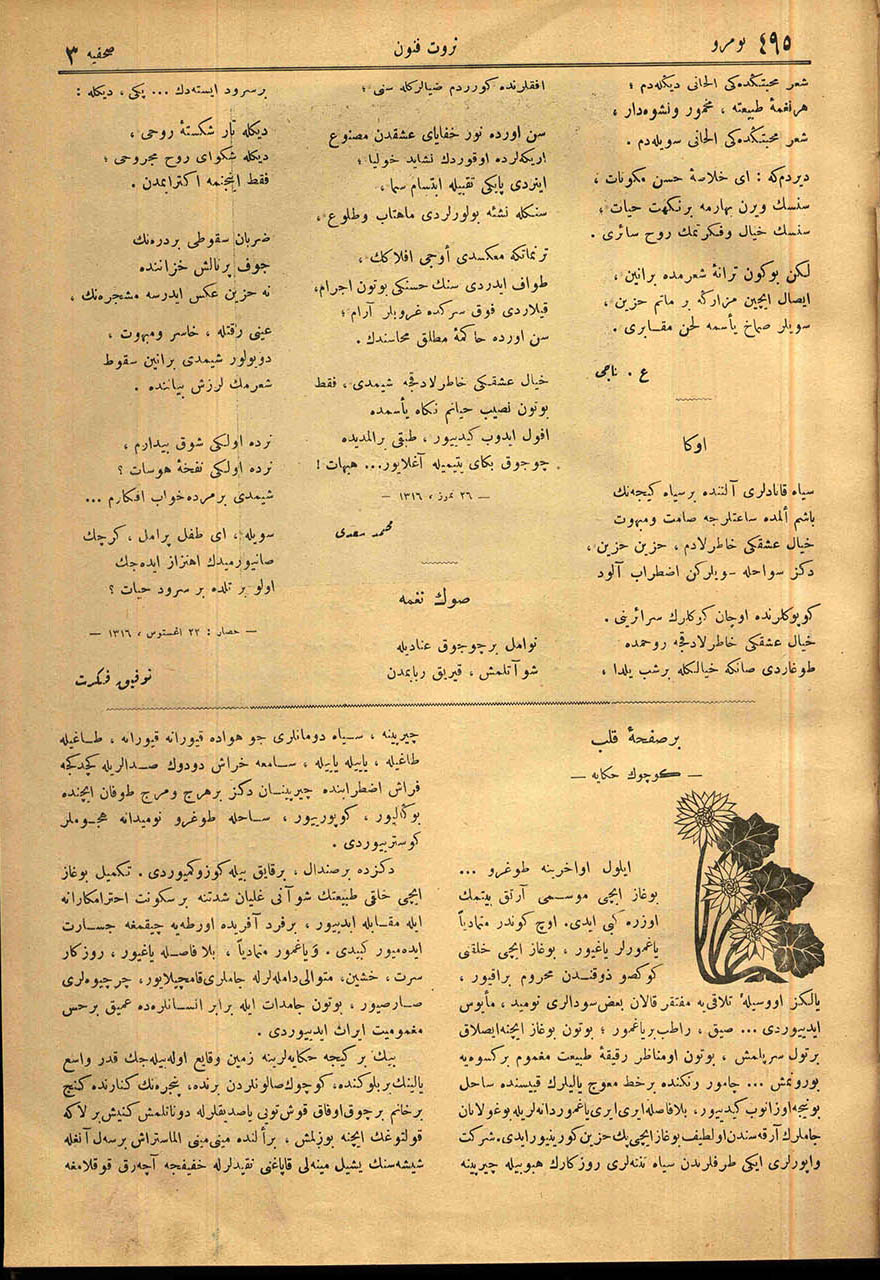 ٤٩٥ نومرو
ثروت فنون
صحيفه ٣
شعر محبتكده‌كى الحانى ديكله‌دم ؛
هرنغمهٔ طبيعته ، مخمور ونشوه‌دار ،
شعر محبتكده‌كى الحانى سويله‌دم .
ديردم‌كه : اى خلاصهٔ حسن مكونات ،
سنسك ويرن بهارمه برنكهت حيات ؛
سنسك خيال وفكرتمك روح سائرى .
لكن بوكون ترانهٔ شعرمده برانين ،
ايصال ايچين مزاركه بر ماتم حزين ،
سويلر صماخ يأسمه لحن مقابرى .
ع . ناجى
اوكا
سياه قانادلرى آلتنده برسياه كيجه‌نك
باشم ألمده ساعتلرجه صامت ومبهوت
خيال عشقكى خاطرلادم ، حزين حزين ،
دكز سواحله سويلركن اضطراب آلود
كوپوكلرنده اوچان كركلرك سرائرينى .
خيال عشقكى خاطرلادقجه روحمده
طوغاردى صانكه خيالكله برشب يلدا ،
افقلرنده كوردم ضيالركله سنى ؛
سن اورده نور خفاياى عشقدن مصنوع
اريكه‌لرده اوقوردك نشايد خوليا ؛
اينردى پايكى تقبيله ابتسام سما ،
سنكله نشئه بولورلردى ماهتاب وطلوع ،
ترنماتكه معكسدى أوجى افلاكك ،
طواف ايدردى سنك حسنكى بوتون اجرام ،
قيلاردى فوق سركده غروبلر آرام ؛
سن اورده حاكمهٔ مطلق محاسندك .
خيال عشقكى خاطرلادقجه شيمدى ، فقط
بوتون نصيب حياتم نكاه يأسمده
افول ايدوب كيدييور ، طبقى برالمديده
چوجوق بكاى يتيميله آغلايور... هيهات !
— ٢٦ تموز ، ١٣١٦ —
محمد سعدى
صوك نغمه
نوامل برچوجوق عناديله
شو آتلمش ، قيريق ربابمدن
برسرود ايسته‌دك ... پكى ، ديكله :
ديكله تار شكستهٔ روحى ،
ديكله شكواى روح مجروحى ؛
فقط اينجنمه اكترابمدن .
ضربان سقوطى بردره‌نك
جوف پرنالش خزاننده
نه حزين عكس ايدرسه مشجره‌نك ،
عينى رقتله ، خاسر ومبهوت ،
دويولور شيمدى برانين سقوط
شعرمك لرزش بياننده .
نرده اولكى شوق بيدارم ،
نرده اولكى نفخهٔ هوسات ؟
شيمدى برمرده‌خواب افكارم ...
سويله ، اى طفل پرامل ، كرچك
صانيورميدك اهتزاز ايده‌جك
اولو بر تلده بر سرود حيات ؟
— حصار : ٢٢ اغستوس ، ١٣١٦ —
توفيق فكرت
برصفحهٔ قلب
— كوچوك حكايه —
ايلول اواخرينه طوغرو ...
بوغاز ايچى موسمى آرتق بيتمك
اوزره كبى ايدى. اوچ كوندر متمادياً
ياغمورلر ياغيور ، بوغاز ايچى خلقنى
كوكصو ذوقندن محروم براقيور ،
يالكز اووسيلهٔ تلاقى‌يه مفتقر قالان بعض سودالرى نوميد ، مأيوس
ايدييوردى... صيق ، راطب برياغمور ؛ بوتون بوغاز ايچنه ايصلاق
برتول سرپلمش ، بوتون اومناظر رقيقهٔ طبيعت مغموم بركسوه‌يه
بورونمش ... جامور رنكنده برخط معوج ياليلرك قپيسنده ساحل
بونجه اوزانوب كيدييور ، بلافاصله ايرى ايرى ياغموردانه‌لريله بوغولانان
جاملرك آرقه‌سندن اولطيف بوغاز ايچى پك حزين كورينيور ايدى. شركت
واپورلرى ايكى طرفلرندن سياه تنته‌لرى روزكارك هبوبيله چيرپينه
چيرپينه ، سياه دومانلرى جو هواده قيورانه قيورانه ، طاغيله
طاغيله ، ياييله ياييله ، سامعه خراش دودوك صدالريله كچدكجه
فراش اضطرابنده چيرپينان دكز برهرج ومرج طوفان ايچنده
بوكاليور ، كوپورييور ، ساحله طوغرو نوميدانه هجوملر
كوسترييوردى .
دكزده برصندال ، برقايق بيله كوزوكميوردى . تكميل بوغاز
ايچى خلقى طبيعتك شو آنى غليان شدتنه برسكونت احترامكارانه
ايله مقابله ايدييور ، برفرد آفريده اورطه‌يه چيقمغه جسارت
ايده‌ميور كيبدى . وياغمور متمادياً ، بلا فاصله ياغيور ، روزكار
سرت ، خشين، متوالى دامله‌لرله جاملرى قامچيلايور، چرچيوه‌لرى
صارصيور ، بوتون جامدات ايله برابر انسانلره‌ده عميق برحس
مغموميت ايراث ايدييوردى .
بيك بر كيجه حكايه‌لرينه زمين وقايع اوله‌بيله‌جك قدر واسع
يالينك بربلوكنده، كوچوك صالونلردن برنده، پنجره‌نك كنارنده كنج
برخانم برچوق اوفاق قوش‌تويى ياصديقلرله دوناتلمش كنيش برلاكه
قولتوغك ايچنه بوزيلمش ، برألنده مينى‌مينى الماستراش برسه‌ل آنغله
شيشه‌سنك يشيل مينه‌لى قاپاغنى تقيدلرله خفيفجه آچه‌رق قوقلامغه